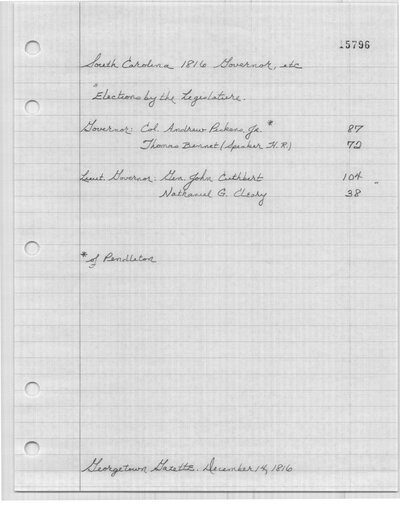 15796
South Carolina 1816 Governor, etc
"Elections by the Legislature.
Governor: Col. Andrew Pickens, Jr. * 87
Thomas Bennet (Speaker H.R.) 72
Lieut. Governor: Gen. John Cuthbert 104
Nathaniel G. Cleary 38
* of Pendleton
Georgetown Gazette. December 14, 1816